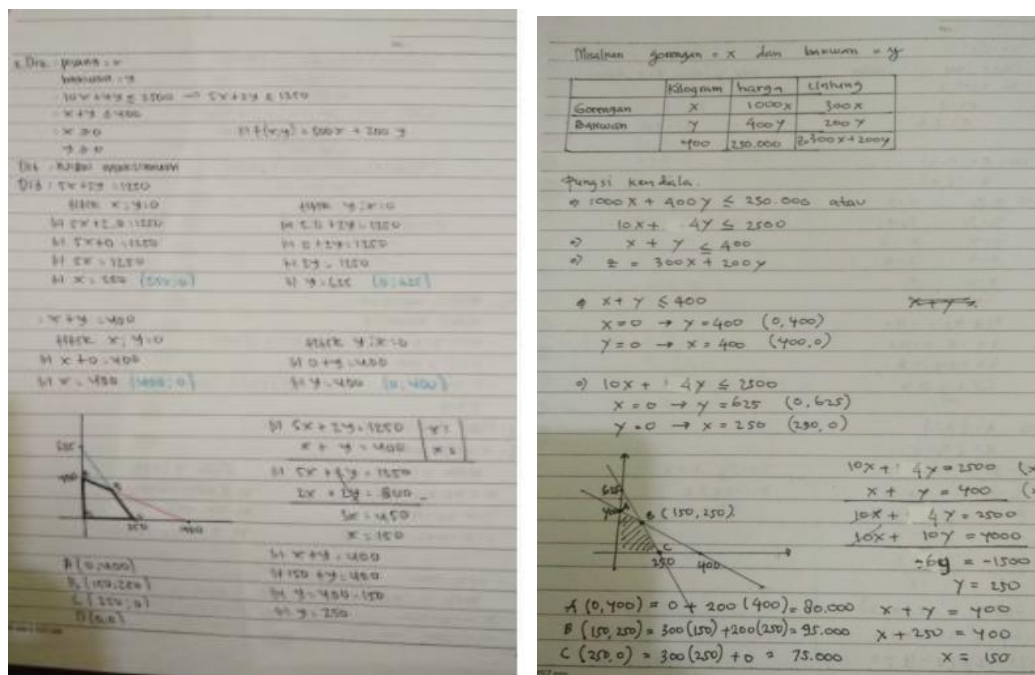 Dik : pisang = x
bakwan = y
10x + 4y ≤ 2500 → 5x + 2y ≤ 1250
x + y ≤ 400
x ≥ 0
y ≥ 0
Dit : Nilai maksimum
5x + 2y = 1250
titik x ; y = 0
5x + 2.0 = 1250
5x + 0 = 1250
5x = 1250
x = 250 (250 ; 0)
titik y ; x = 0
5.0 + 2y = 1250
0 + 2y = 1250
2y = 1250
y = 625 (0 ; 625)
x + y = 400
titik x ; y = 0
x + 0 = 400
x = 400 (400 ; 0)
titik y ; x = 0
0 + y = 400
y = 400 (0 ; 400)
625
400
250
400
5x + 2y = 1250
x + y = 400
2x + 2y = 800
3x = 450
x = 150
x + y = 400
150 + y = 400
y = 400 - 150
y = 250
A (0 ; 400)
B (150 ; 250)
C (250 ; 0)
D (0,0)
Misalnan gorengan = x dan bakwan = y
Kilogram harga Untung
Gorengan X 1000x 300x
Bakwan Y 400y 200y
400 250.000 z=300x+200y
Fungsi kendala.
1000x + 400y ≤ 250.000 atau
10x + 4y ≤ 2500
x + y ≤ 400
z = 300x + 200y
x + y ≤ 400
x + y =
x = 0 → y = 400 (0, 400)
y = 0 → x = 400 (400, 0)
10x + 4y ≤ 2500
x = 0 → y = 625 (0, 625)
y = 0 → x = 250 (250, 0)
625
400
A
B (150, 250)
C
250
400
10x + 4y = 2500
x + y = 400
10x + 4y = 2500
10x + 10y = 4000
-6y = -1500
y = 250
x + y = 400
x + 250 = 400
x = 150
A (0, 400) = 0 + 200 (400) = 80.000
B (150, 250) = 300(150) + 200(250) = 95.000
C (250, 0) = 300(250) + 0 = 75.000